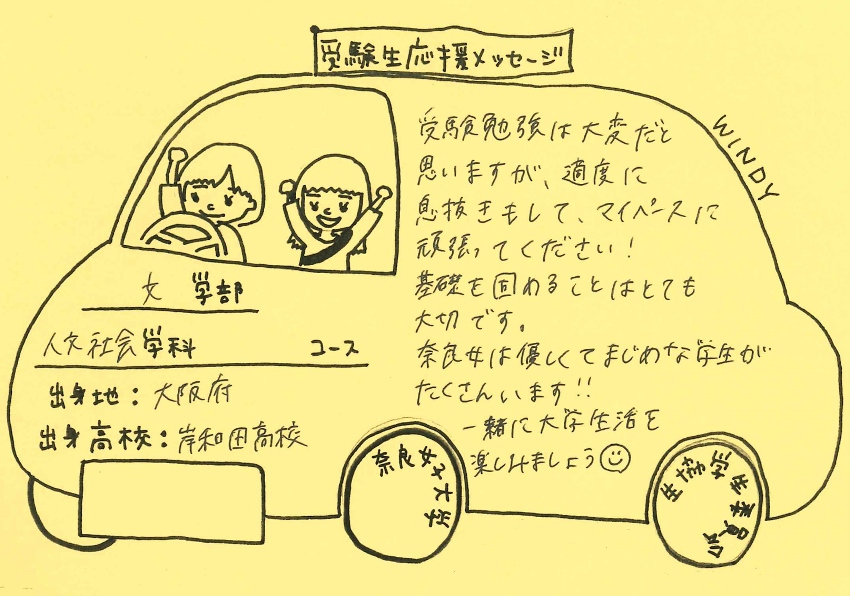 受験生応援メッセージ
WINDY
受験勉強は大変だと
思いますが、適度に
息抜きもして、マイペースに
頑張ってください!
基礎を固めることはとても
大切です。
奈良女は優しくてまじめな学生が
たくさんいます!!
一緒に大学生活を
楽しみましょう
文 学部
人文社会学科 コース
出身地:大阪府
出身高校:岸和田高校
奈良女子大学
生協学生委員会